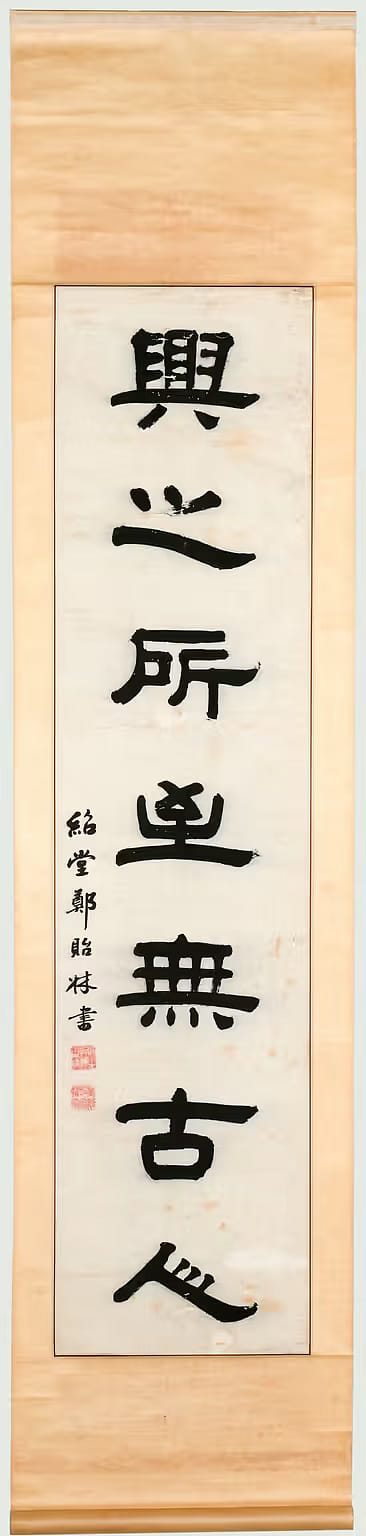 興之所至無古人
紹堂鄭貽林書